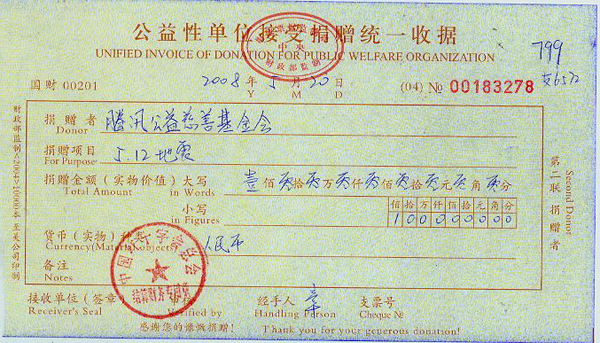 公益性单位接受捐赠统一收据
UNIFIED INVOICE OF DONATION FOR PUBLIC WELFARE ORGANIZATION
中央
财政部监制
799
国财 00201
2008年5月20日
Y M D
(04) № 00183278
捐赠者 腾讯公益慈善基金会
Donor
捐赠项目 5.12地震
For Purpose
捐赠金额（实物价值）大写 壹佰零拾零万零仟零佰零拾零元零角零分
Total Amount in Words
小写 佰拾万仟佰拾元角分
in Figures 100000000
货币（实物）种类 人民币
Currency(Material objects)
备注
Notes
接收单位（签章）
Receiver's Seal
Verified by
经手人
Handling Person
支票号
Cheque №
感谢您的慷慨捐赠！
Thank you for your generous donation!
第二联 捐赠者
Second Donor
中国红十字会总会